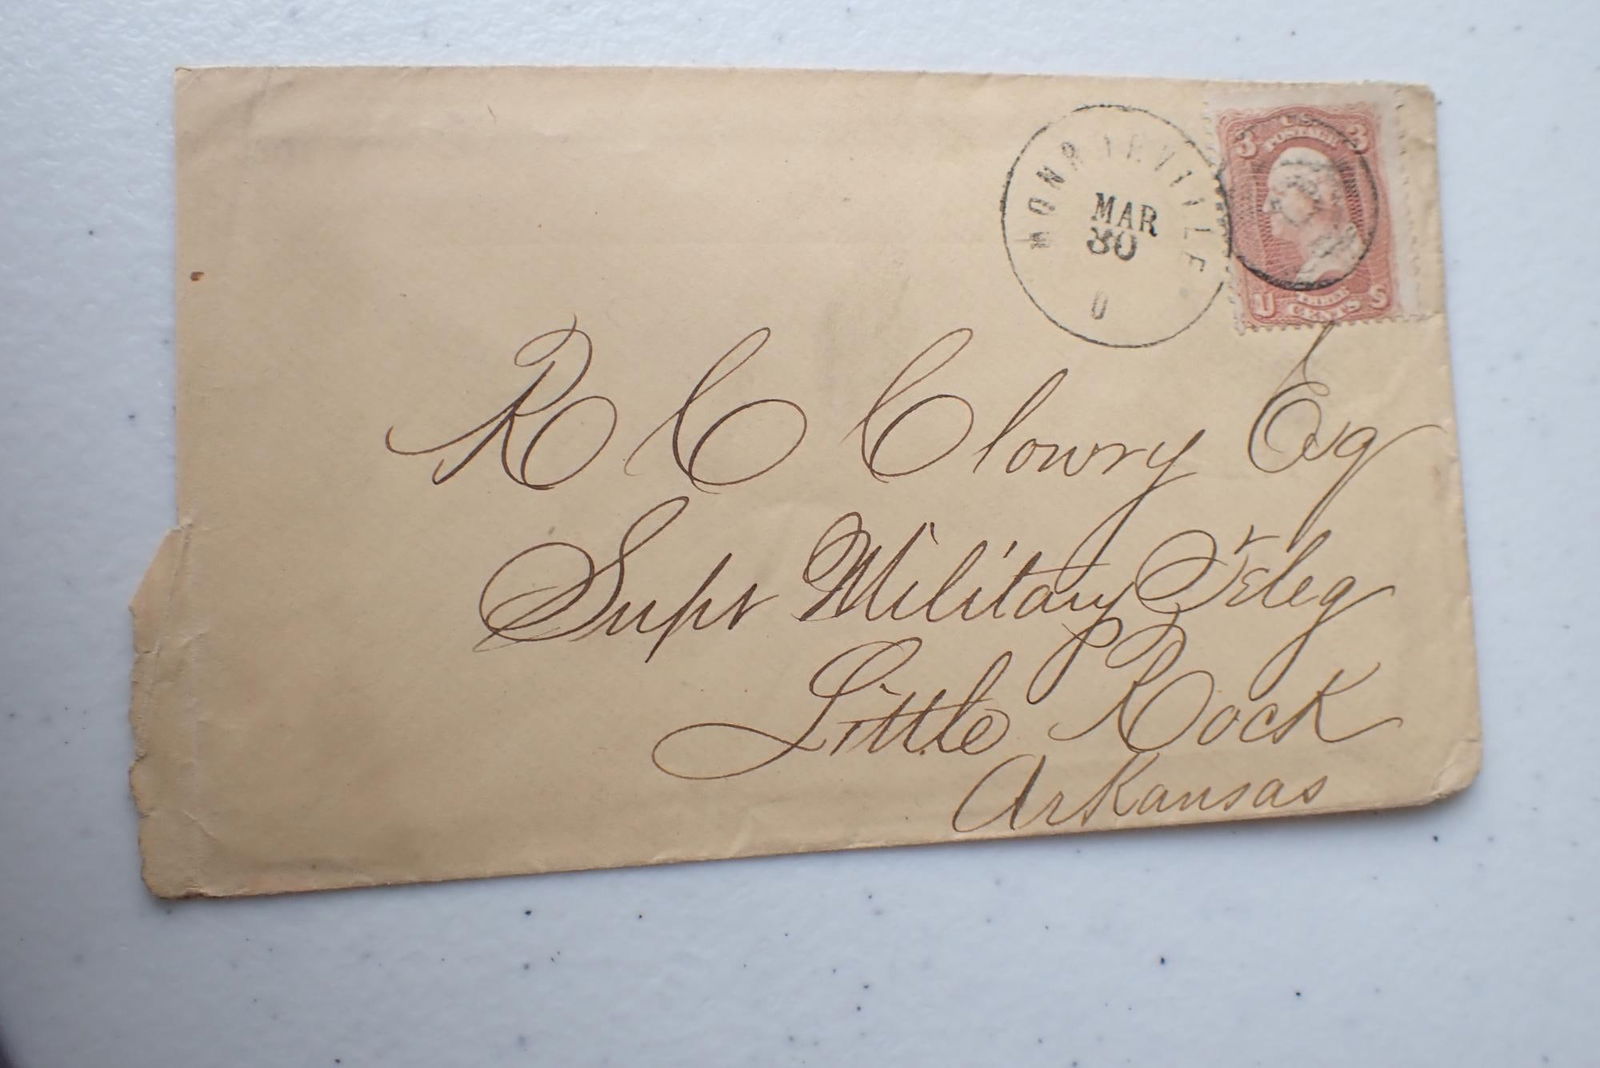 MONROEVILLE
MAR
30
O
3 U.S. 3
POSTAGE
U THREE S
CENTS
R C Clowry Esq
Supt Military Teleg
Little Rock
Arkansas